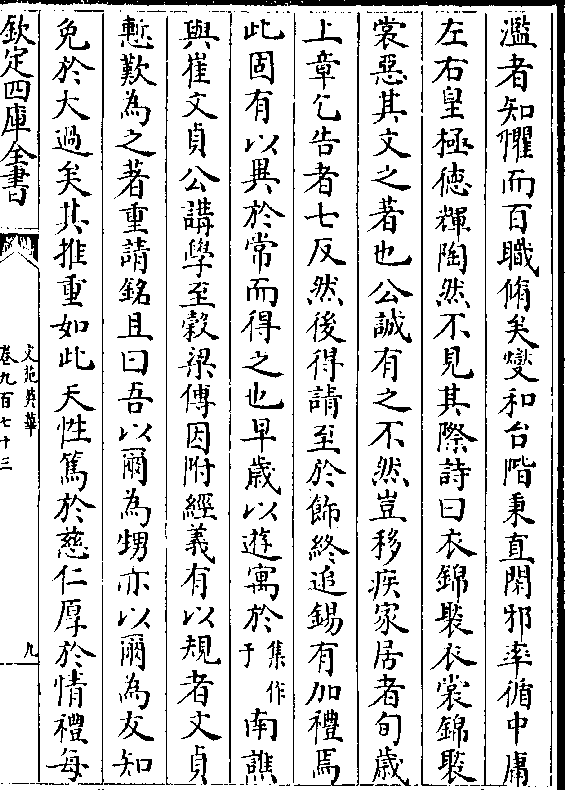 濫者知懼而百職脩矣燮和台階秉直閑邪率循中庸
左右皇極徳輝陶然不見其際詩曰衣錦褧衣裳錦褧
裳惡其文之著也公誠有之不然豈移疾家居者旬歳
上章乞告者七反然後得請至於飾終追錫有加禮焉
此固有以異於常而得之也早歳以遊寓於集作于南譙
與崔文貞公講學至榖梁傳因附經義有以規者文貞
慙歎為之著重請銘且曰吾以爾為甥亦以爾為友知
免於大過矣其推重如此天性篤於慈仁厚於情禮每
欽定四庫全書
文苑英華
卷九百七十三
九